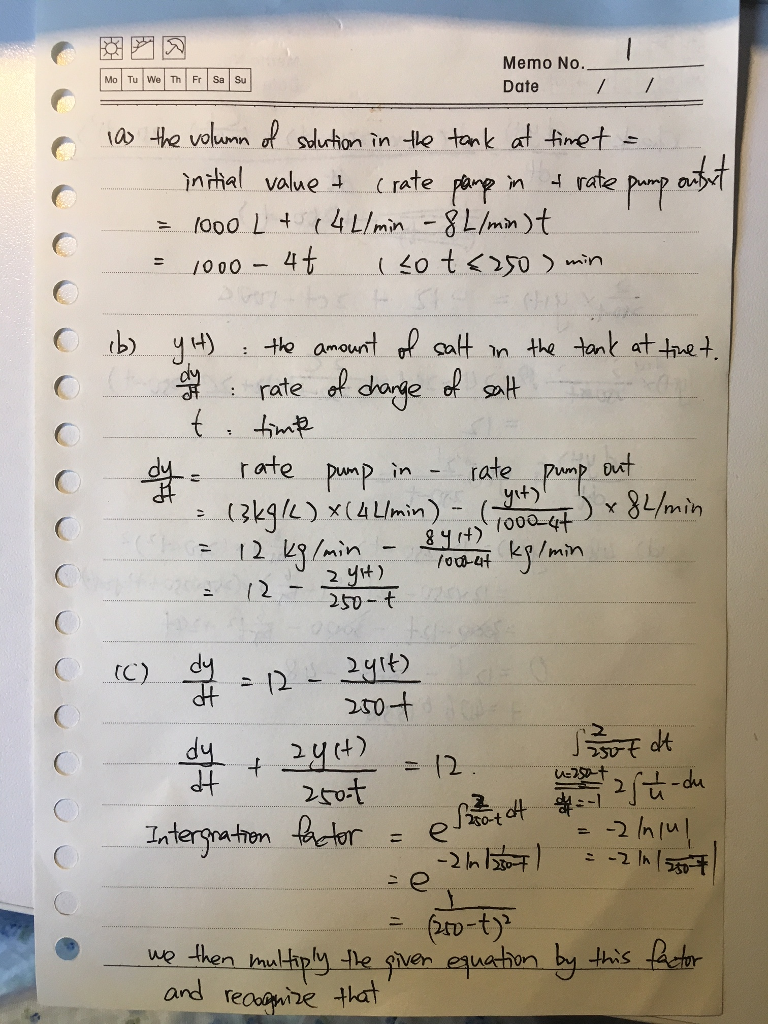 Mo Tu We Th Fr Sa Su
Memo No. 1
Date / /
(a) the volumn of solution in the tank at time t =
initial value + (rate pump in + rate pump output
= 1000 L + (4 L/min - 8 L/min)t
= 1000 - 4t (≤0 t < 250) min
(b) y(t) : the amount of salt in the tank at time t.
dy/dt : rate of change of salt
t : time
dy/dt = rate pump in - rate pump out
= (3kg/L) × (4L/min) - (y(t)/1000-4t) × 8L/min
= 12 kg/min - 8y(t)/1000-4t kg/min
= 12 - 2y(t)/250-t
(c) dy/dt = 12 - 2y(t)/250-t
dy/dt + 2y(t)/250-t = 12.
∫ 2/250-t dt
u=250-t du/dt=-1 2∫ 1/u -du
= -2 ln|u|
= -2 ln|1/250-t|
Intergration factor = e^∫2/250-t dt
= e^-2 ln|1/250-t|
= 1/(250-t)²
we then multiply the given equation by this factor
and recognize that